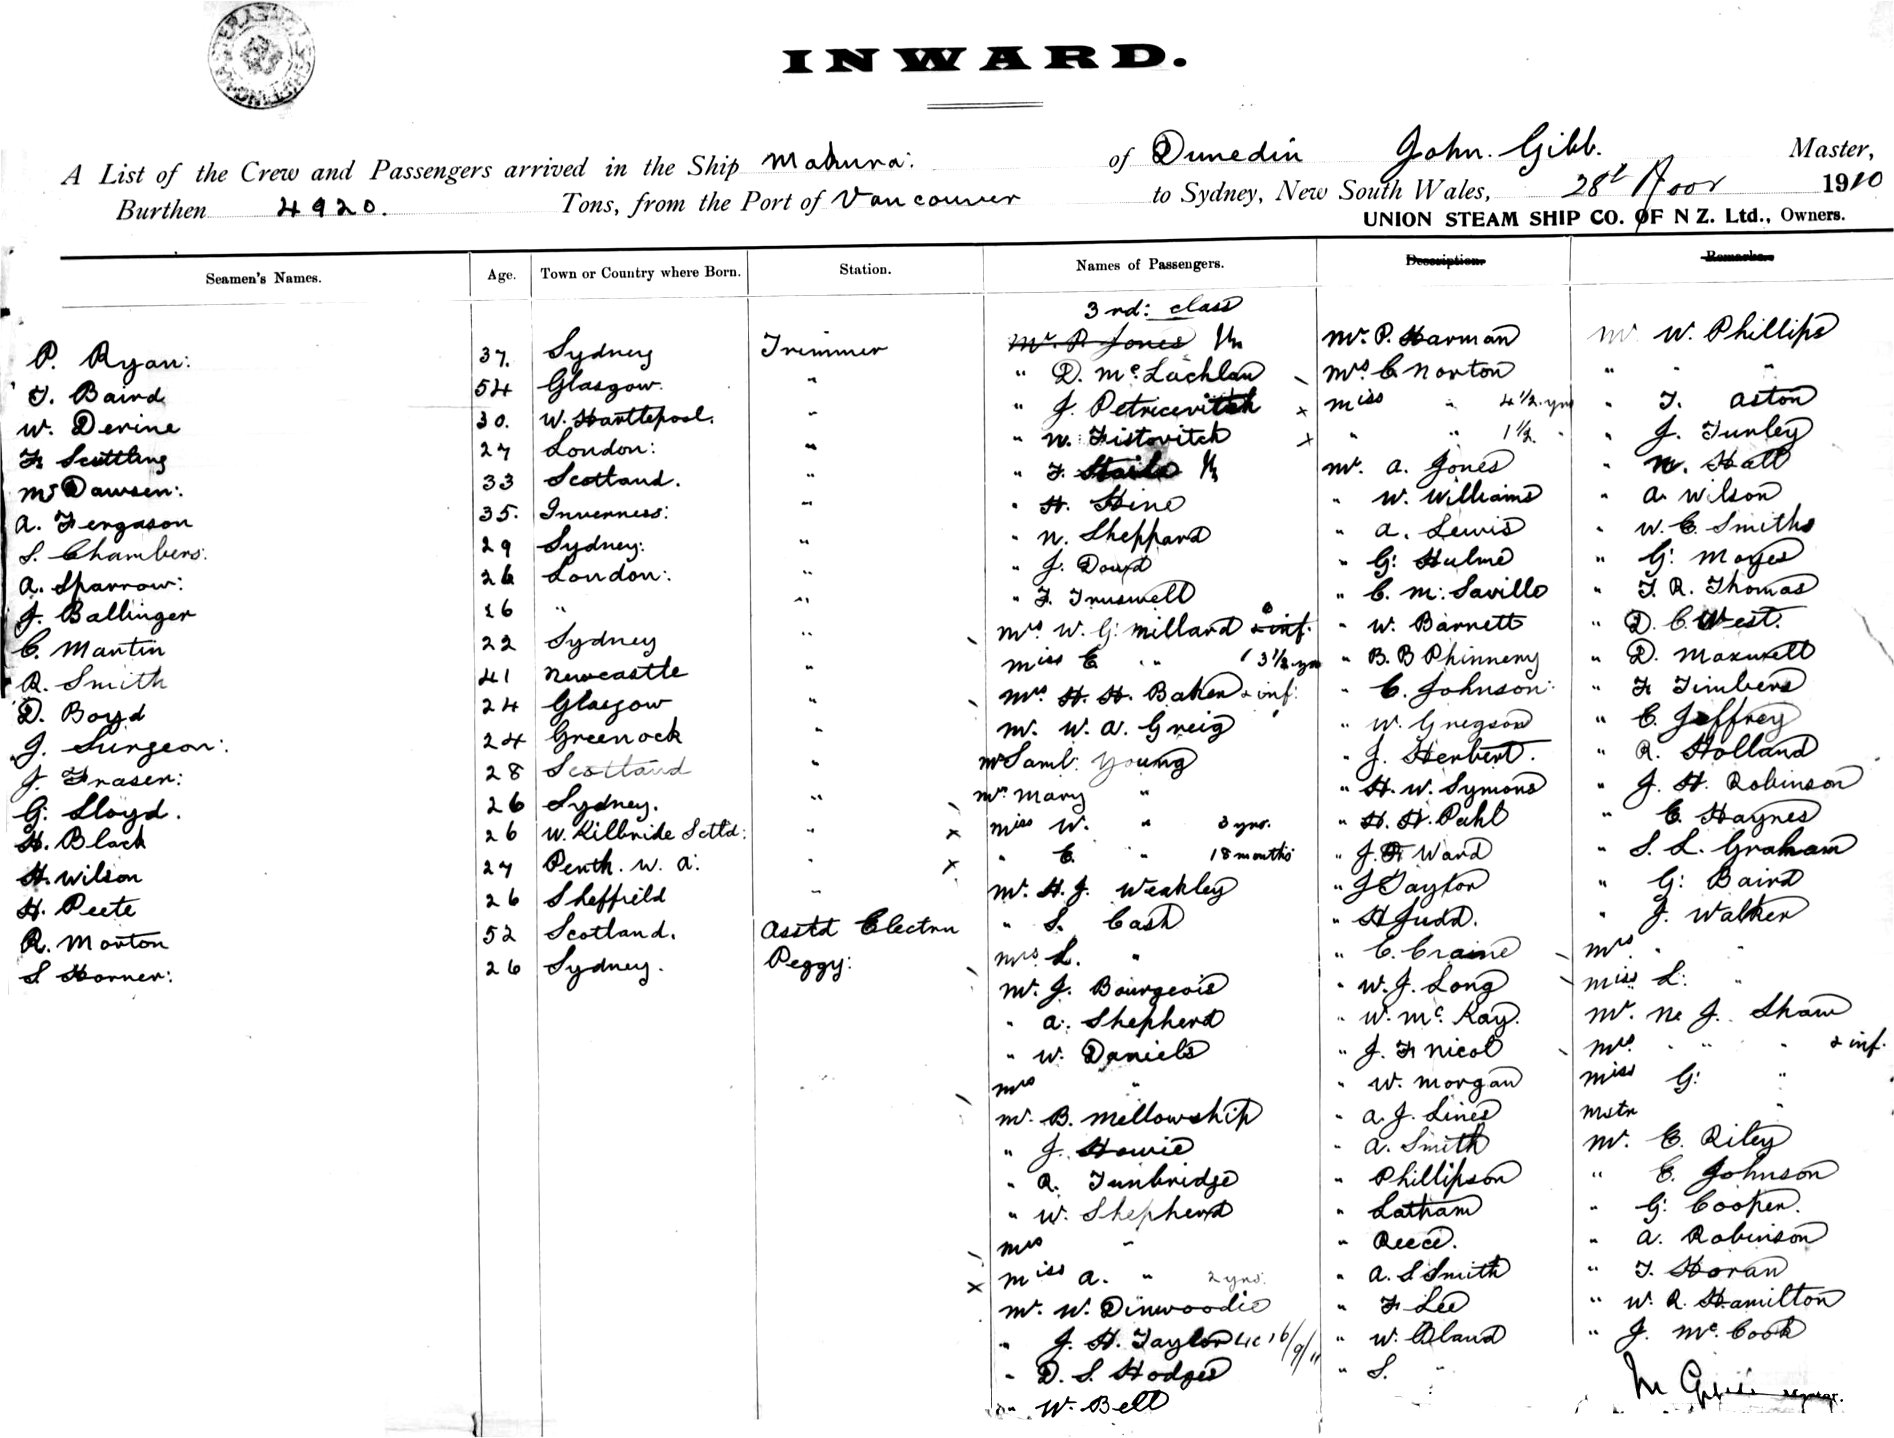 INWARD.
A List of the Crew and Passengers arrived in the Ship Makura: of Dunedin John. Gibb. Master,
Burthen 4920. Tons, from the Port of Vancouver to Sydney, New South Wales, 28t 1910
UNION STEAM SHIP CO. OF N Z. Ltd., Owners.
Seamen's Names. Age. Town or Country where Born. Station. Names of Passengers. Description. Remarks.
3rd: class
P. Ryan: 37. Sydney Trimmer Mr. P. Jones Mr. P. Harman Mr W. Phillips
T. Baird 54 Glasgow. " " D. McLachlan Mrs C Norton " " "
W. Devine 30. W. Hartlepool. " " J. Petricevitch x Miss " 4½ yrs " T. Aston
F. Scuttling 27 London: " " N. Fistovitch x " " 1½ " " J. Tunley
Mc Dawsen: 33 Scotland. " " F. Mr. A. Jones " N. Hall
A. Fergason 35. Inverness: " " H. Hine " W. Williams " A. Wilson
S. Chambers: 29 Sydney: " " N. Sheppard " A. Lewis " W. C. Smith
A. Sparrow: 26 London: " " J. Doud " G: Hulme " G: Moyes
J. Ballinger 16 " " " F. Truswell " C. M. Saville " T. R. Thomas
C. Martin 22 Sydney " Mrs W. G: Millard & inf. " W. Barnett " D. C. West.
R. Smith 41 Newcastle " Miss C " " 3½ yrs " B. B Phinnemy " D. Maxwell
D. Boyd 24 Glasgow " Mrs. H. H. Baker & inf: " C. Johnson: " F. Timbers
J. Surgeon: 24 Greenock " Mr. W. A. Greig " W. Gregson " C. Jeffrey
J. Fraser: 28 Scotland " Mr Saml. Young " J. Herbert. " R. Holland
G: Lloyd. 26 Sydney. " Mrs Mary " " H. W. Symons " J. H. Robinson
H. Black 26 W. Kilbride Sctld: " x Miss W. " 3 yrs. " H. H. Pahl " C. Haynes
H. Wilson 27 Perth. W. A: " x " C. " 18 months " J. F. Ward " S. L. Graham
H. Peete 26 Sheffield " Mr. H. J. Weakley " J Taylor " G: Baird
R. Morton 52 Scotland. Asstd Electrn " S. Cash " H Judd. " J. Walker
S Horner: 26 Sydney. Peggy: Mrs L. " " C. Craine Mrs " "
Mr. J. Bourgeois " W. J. Long Miss L: "
" A. Shepherd " W. Mc. Kay. Mr. J. Shaw
" W. Daniels " J. F. Nicol Mrs. " " " & inf.
Mrs " " W. Morgan Miss G: "
Mr. B. Mellowship " A. J. Lines Mstr "
" J. Howie " A. Smith Mr. C. Riley
" R. Tunbridge " Phillipson " C. Johnson
" W. Shepherd " Latham " G: Cooper.
Mrs " " Reece. " A. Robinson
x Miss A. " 2 yrs. " A. S Smith " T. Horan
Mr. W. Dinwoodie " F. Lee " W. R. Hamilton
" J. H. Taylor 16/9/11 " W. Bland " J. Mc. Cook
" D. S. Hodges " S. "
" W. Bell